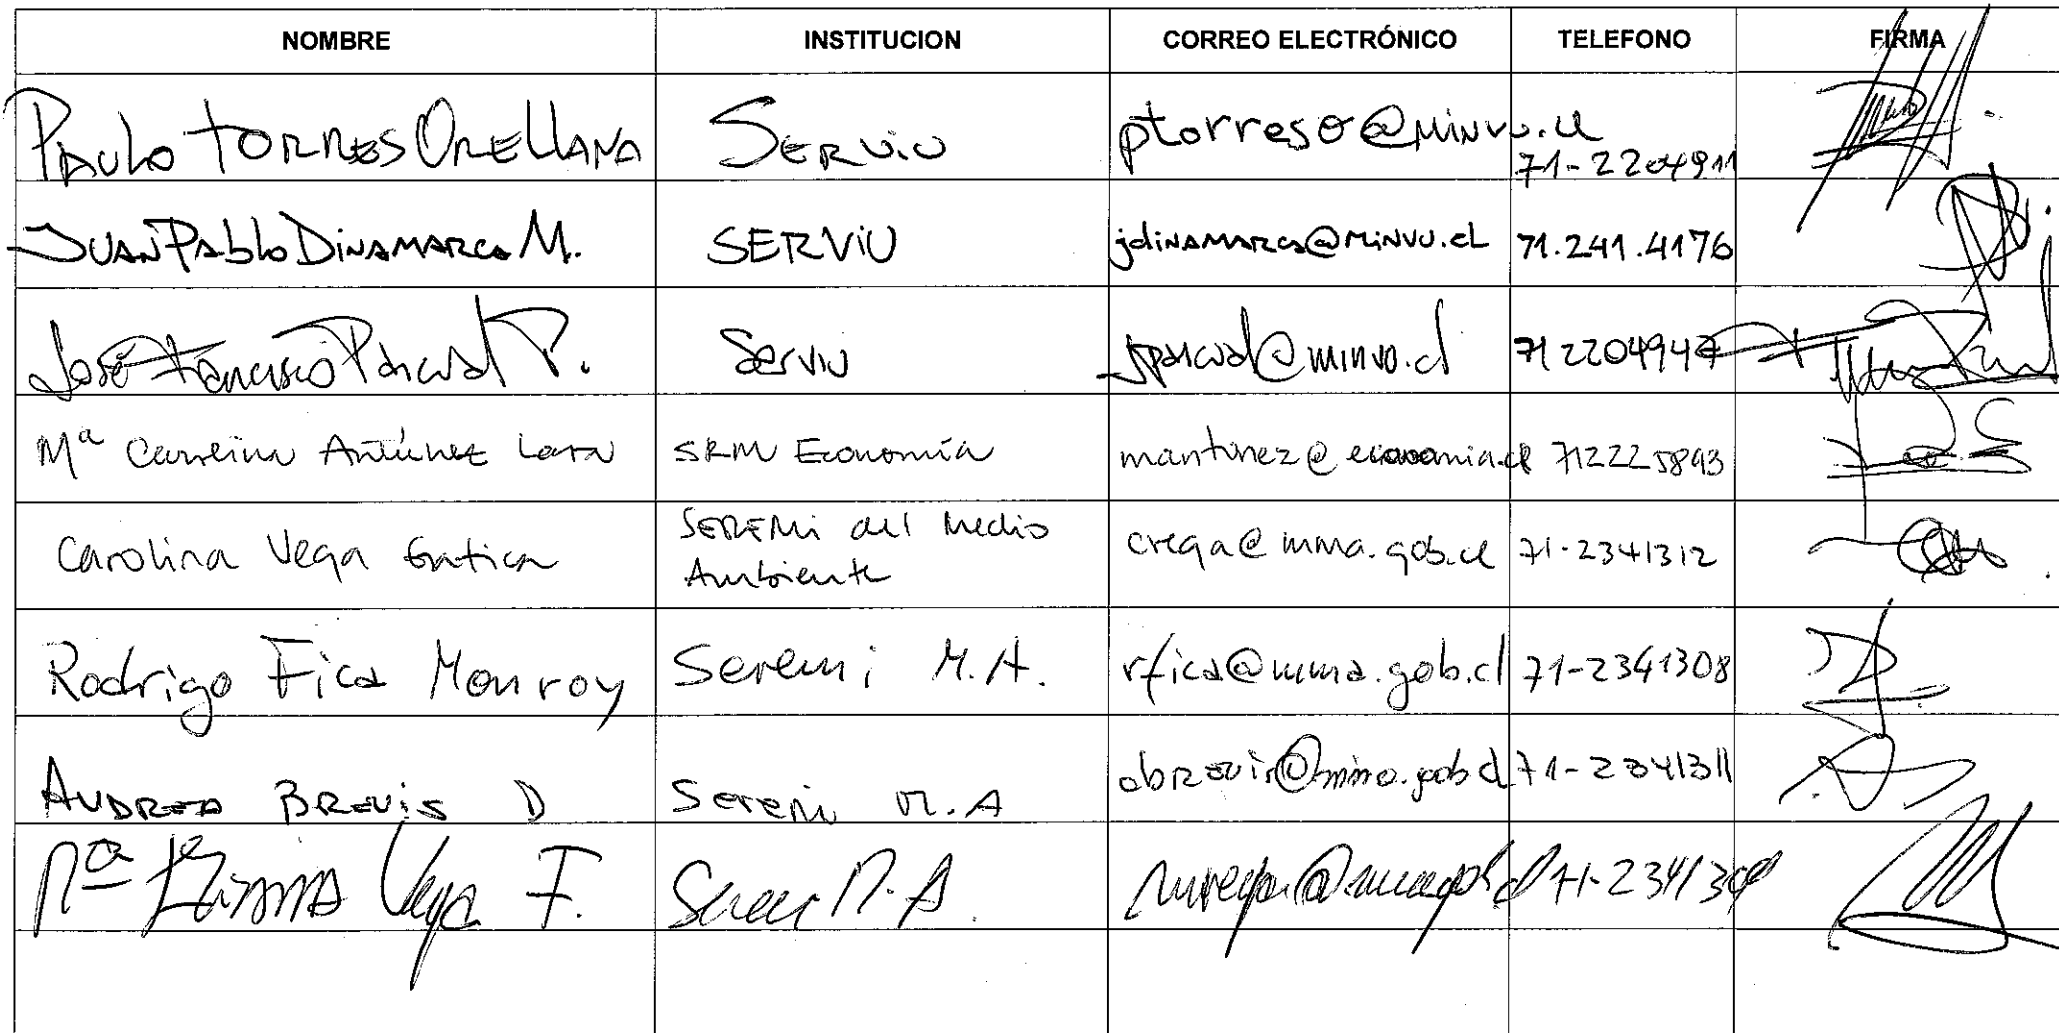 NOMBRE INSTITUCION CORREO ELECTRÓNICO TELEFONO FIRMA
PAULO TORRES ORELLANA SERVIU ptorreso@minvu.cl 71-2204911
JUAN PABLO DINAMARCA M. SERVIU jdinamarca@minvu.cl 71.241.4176
José Francisco Pascual P. Serviu jpascual@minvu.cl 71 2204947
Mª Antúnez Lara SRM Economía mantunez@economia.cl
Carolina Vega Gatica SEREMi del Medio cvega@mma.gob.cl 71-2341312
Ambiente
Rodrigo Fica Monroy Seremi M.A. rfica@mma.gob.cl 71-2341308
ANDREA BREVIS D Seremi M.A 71-2341311
Mª Vega F. M.A.